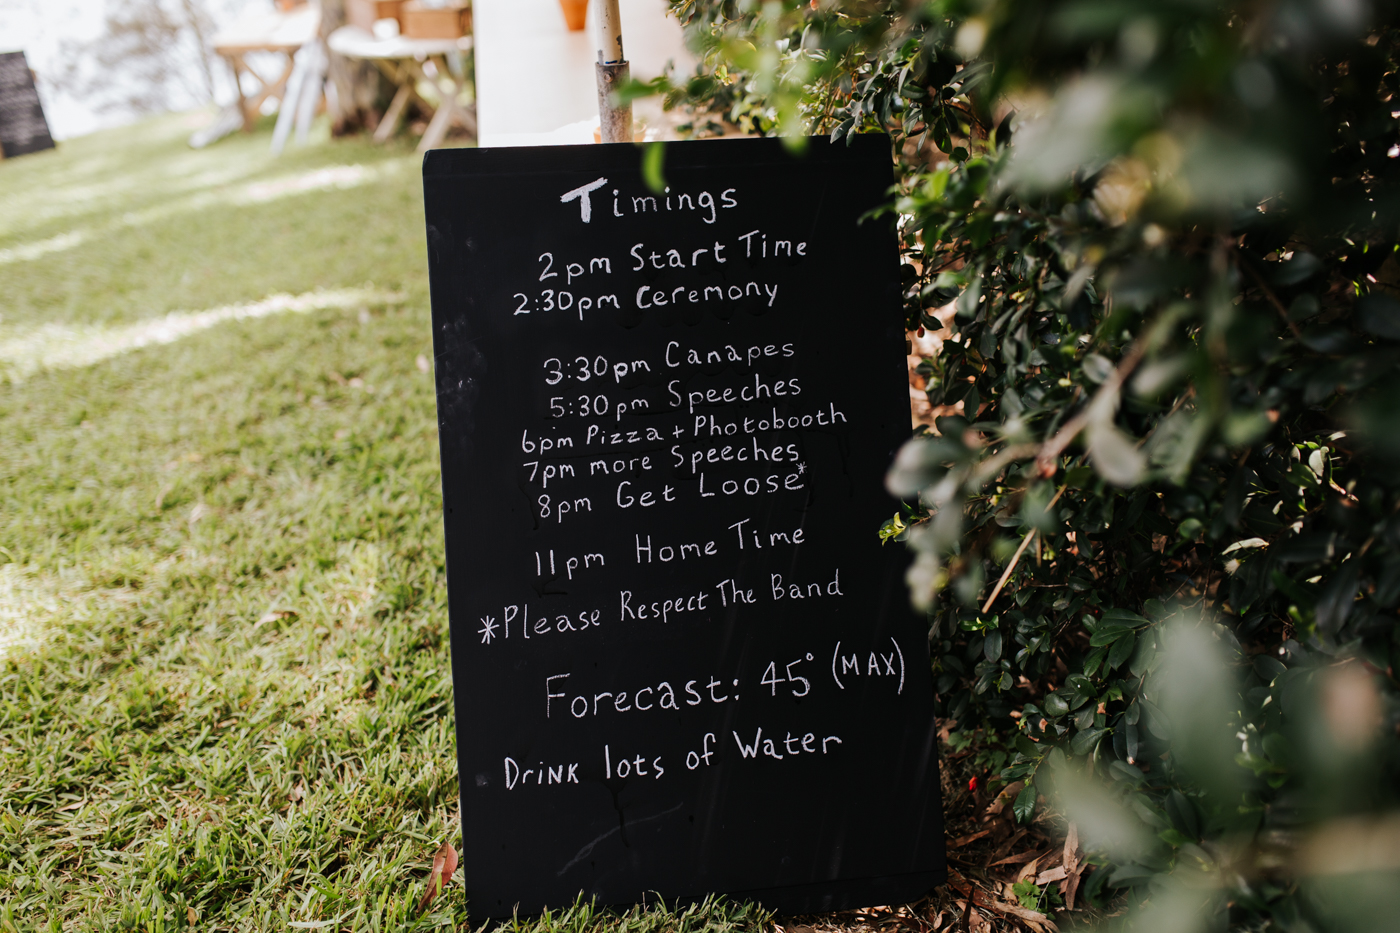 Timings
2pm Start Time
2:30pm Ceremony
3:30pm Canapes
5:30pm Speeches
6pm Pizza + Photobooth
7pm more Speeches
8pm Get Loose*
11pm Home Time
*Please Respect The Band
Forecast: 45° (MAX)
Drink lots of Water